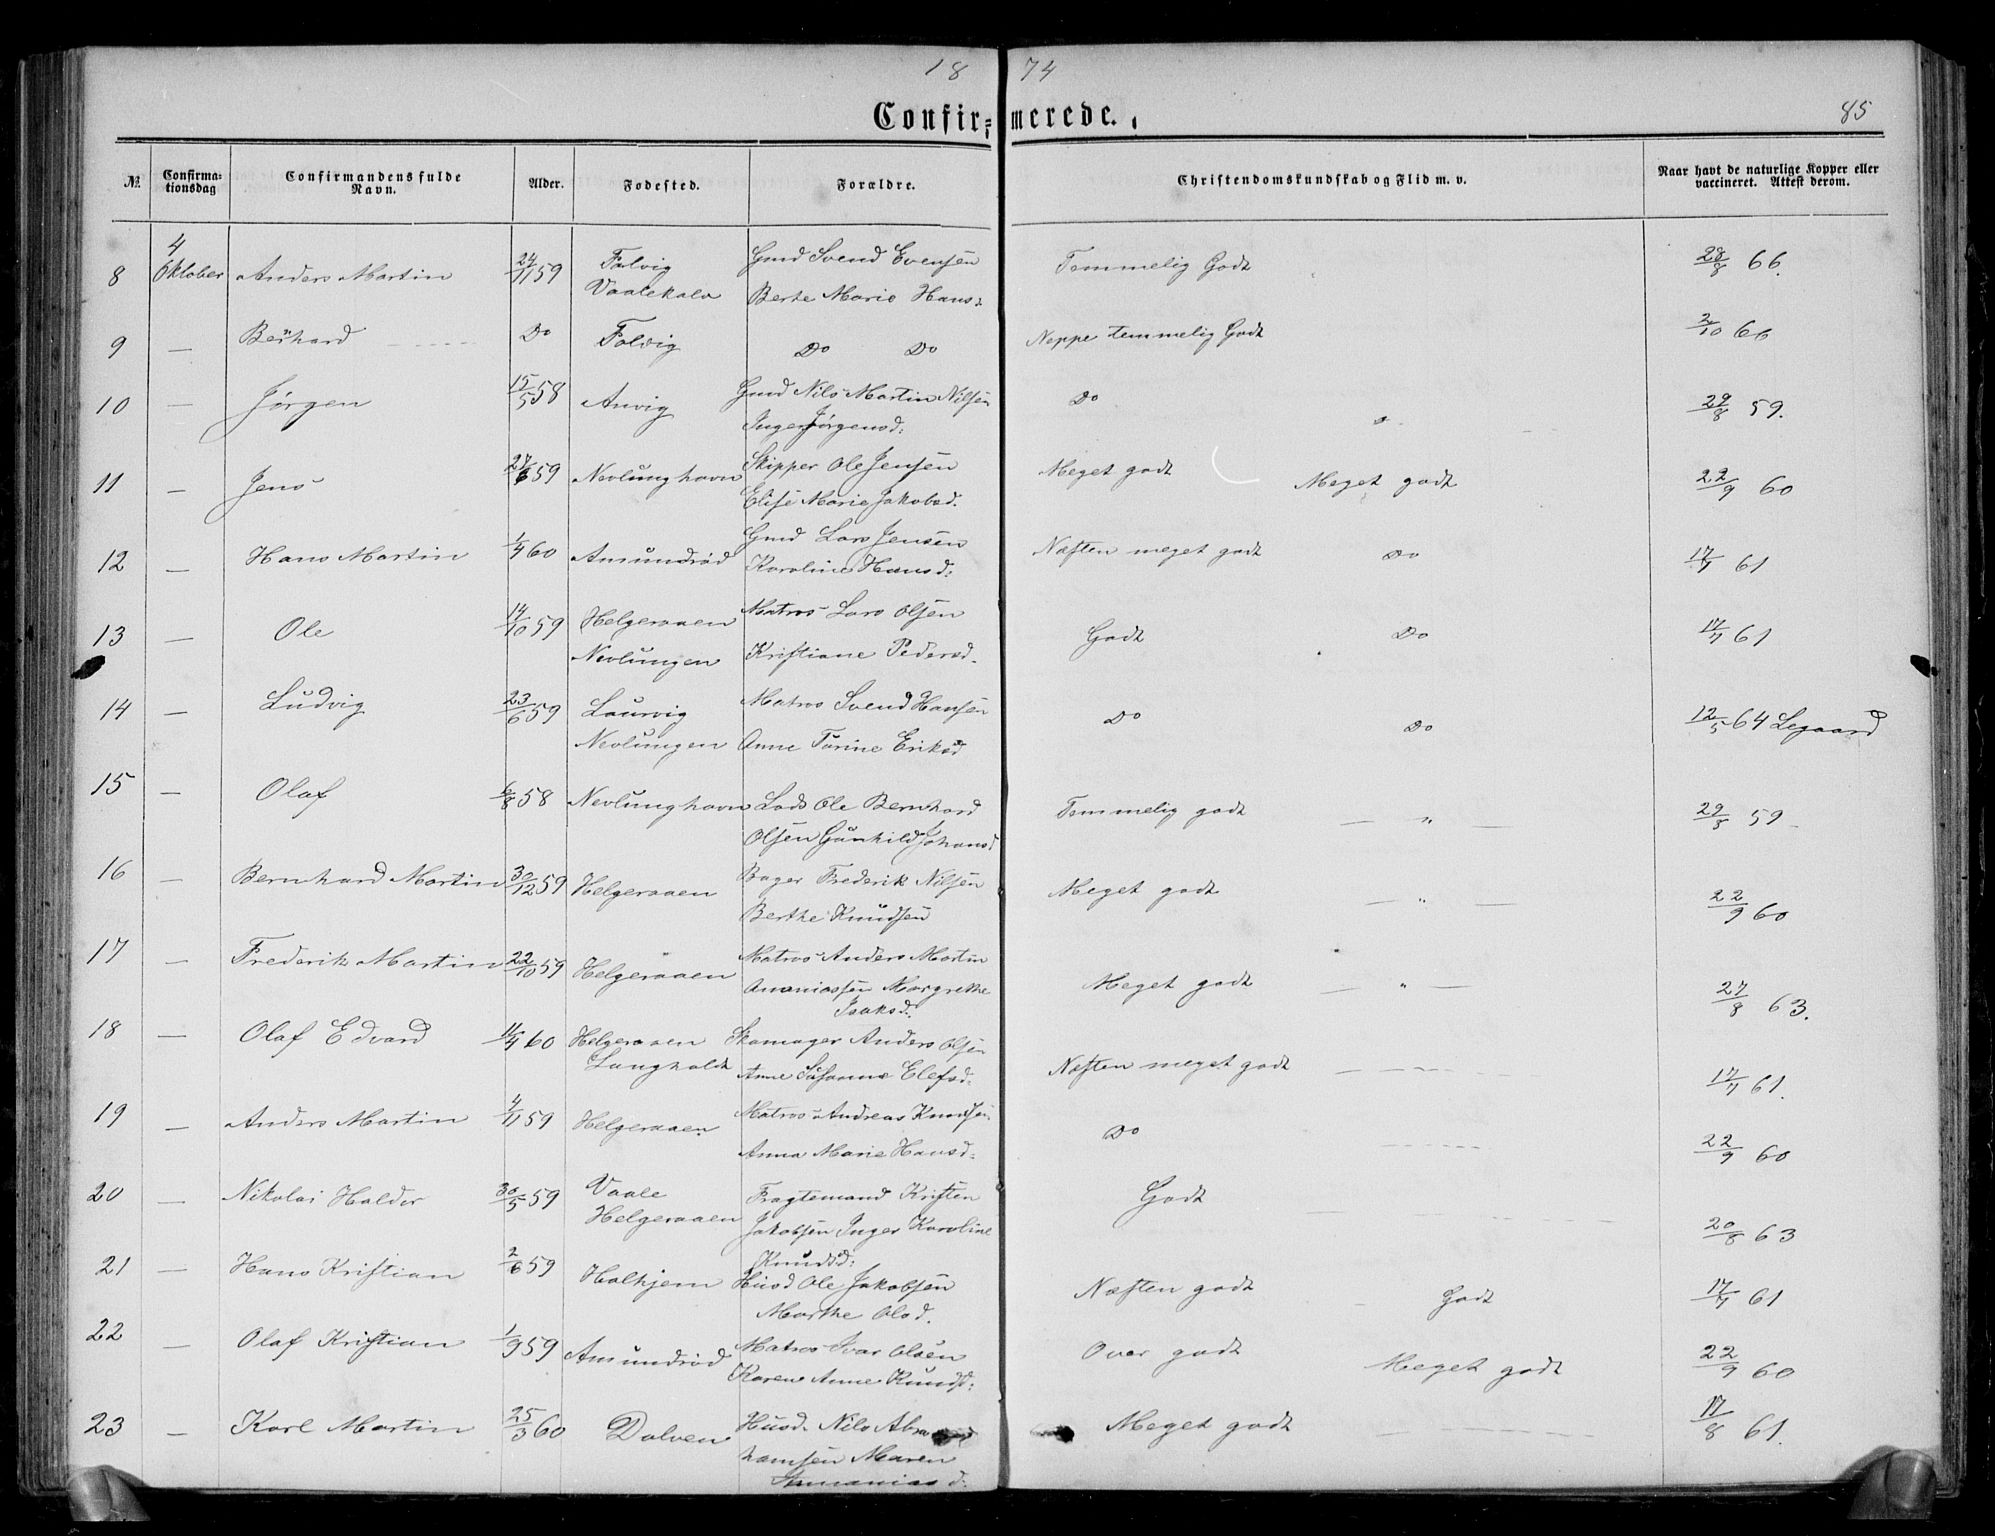 18 74
Confir- merede.
85
№ Confirma-tionsdag Confirmandens fulde Navn. Alder. Fødested. Forældre. Christendomskundskab og Flid m. v. Naar havt de naturlige Kopper eller vaccineret. Attest derom.
8 4 Oktober Anders Martin 24/11 59 Falvig Gmd Svend Evensen Temmelig Godt 28/8 66.
Vaalekalv Berte Marie Hansd:
9 — Bernhard Do Falvig Do Do Neppe temmelig Godt 2/10 66
10 — Jørgen 15/5 58 Anvig Gmd Nils Martin Nilsen Do 29/8 59.
Inger Jørgensd:
11 — Jens 27/6 59 Nevlunghavn Skipper Ole Jensen Meget godt Meget godt 22/9 60
Elise Marie Jakobsd.
12 — Hans Martin 1/4 60 Amundrød Gmd Lars Jensen Næsten meget godt Do 17/7 61
Karoline Hansd:
13 — Ole 14/10 59 Helgeraaen Matros Lars Olsen Godt Do 17/7 61
Nevlungen Kristiane Pedersd.
14 — Ludvig 23/6 59 Laurvig Matros Svend Hansen Do Do 12/5 64 Legaard
Nevlungen Anne Turine Eriksd
15 — Olaf 6/8 58 Nevlunghavn Lods Ole Bernhard Temmelig godt — " — 29/8 59
Olsen Gunhild Johansd
16 — Bernhard Martin 30/12 59 Helgeraaen Bager Frederik Nilsen Meget godt — " — 22/9 60
Berthe Knudsen
17 — Frederik Martin 22/10 59 Helgeraaen Matros Anders Martin Meget godt — " — 27/8 63.
Ananiassen Margrethe
Isaksd.
18 — Olaf Edvard 11/4 60 Helgeraaen Skomager Anders Olsen Næsten meget godt 17/7 61.
Langholdt Anne Susanne Elefsd.
19 — Anders Martin 4/11 59 Helgeraaen Matros Andreas Knudsen Do 22/9 60
Anna Marie Hansd.
20 — Nikolai Halder 30/5 59 Vaale Fragtemand Kristen Godt 20/8 63
Helgeraaen Jakobsen Inger Karoline
Knudsd:
21 — Hans Kristian 2/6 59 Halhjem Husd Ole Jakobsen Næsten godt Godt 17/7 61
Marthe Olsd.
22 — Olaf Kristian 1/9 59 Amundrød Matros Ivar Olsen Over godt Meget godt 22/9 60
Karen Anne Knudsd:
23 — Karl Martin 25/3 60 Dolven Husd. Nils Abra Meget godt 17/8 61.
hamsen Maren
Annanias d: